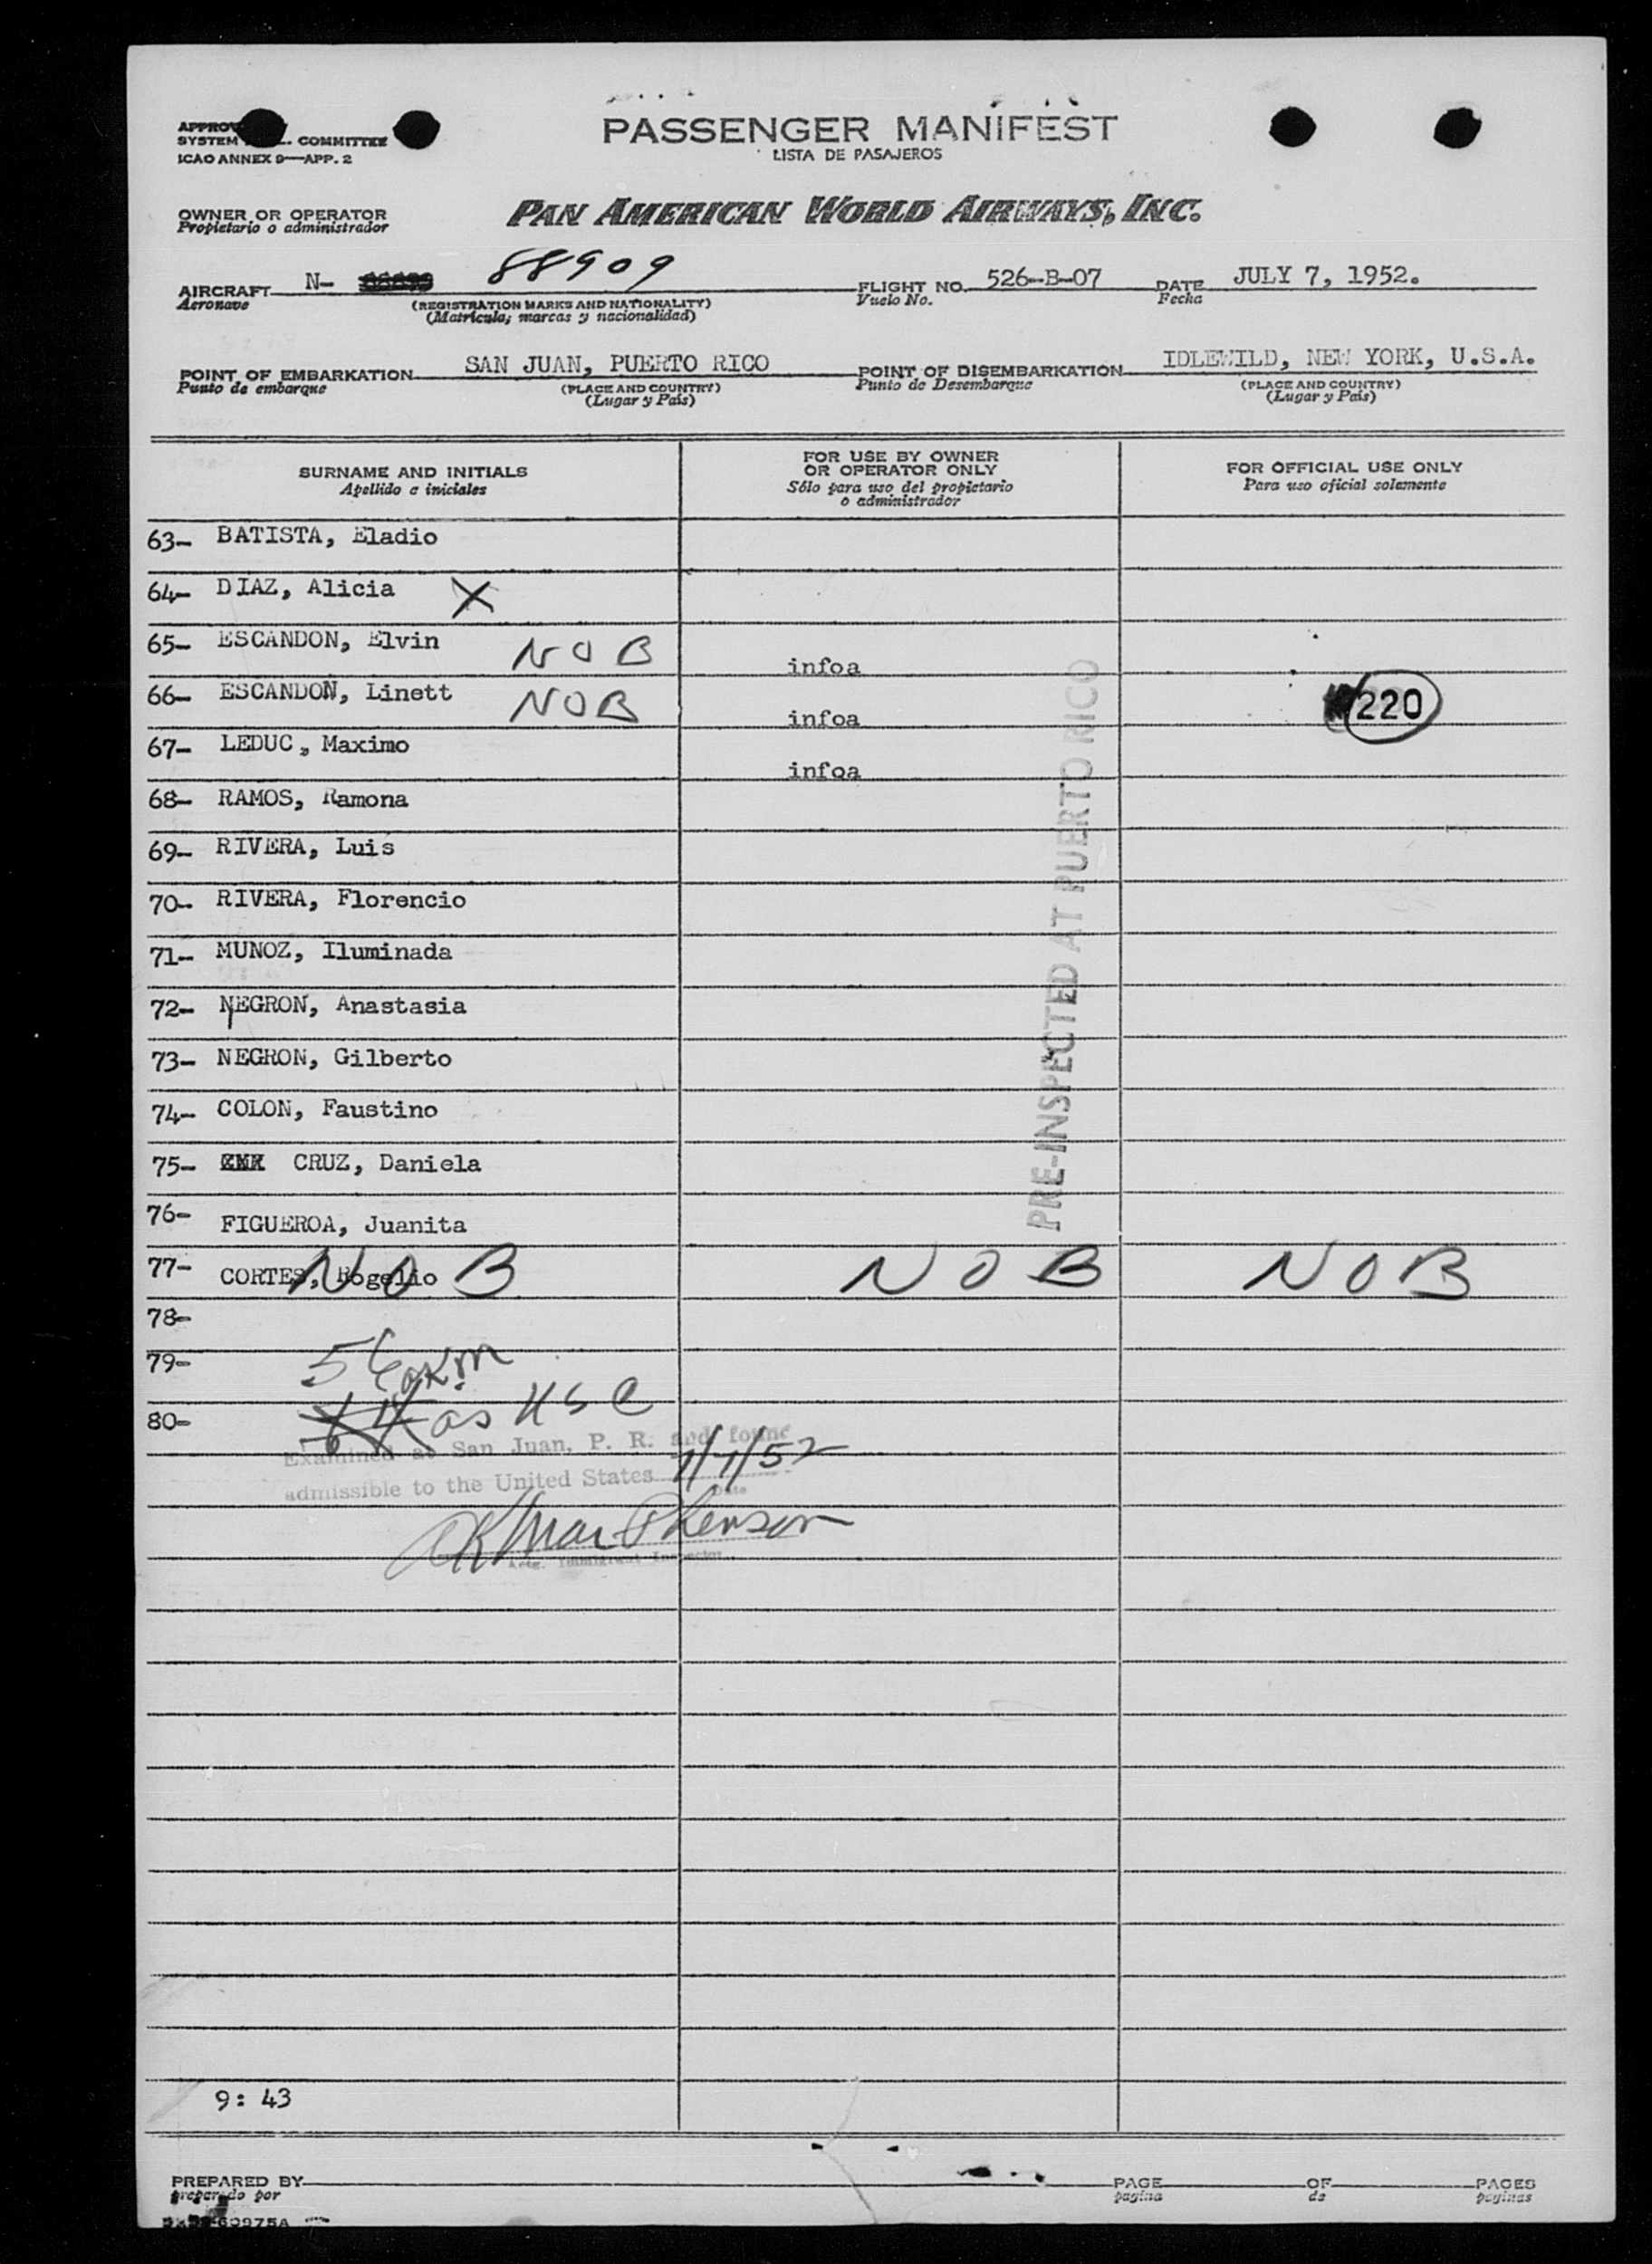 PASSENGER MANIFEST
LISTA DE PASAJEROS
SYSTEM COMMITTEE
ICAO ANNEX 9—APP. 2
OWNER OR OPERATOR
Propietario o administrador
PAN AMERICAN WORLD AIRWAYS, INC.
AIRCRAFT N- 88909
Aeronave
(REGISTRATION MARKS AND NATIONALITY)
(Matrícula, marcas y nacionalidad)
FLIGHT NO. 526-B-07
Vuelo No.
DATE JULY 7, 1952.
Fecha
POINT OF EMBARKATION SAN JUAN, PUERTO RICO
Punto de embarque
(PLACE AND COUNTRY)
(Lugar y País)
POINT OF DISEMBARKATION IDLEWILD, NEW YORK, U.S.A.
Punto de Desembarque
(PLACE AND COUNTRY)
(Lugar y País)
SURNAME AND INITIALS
Apellido e iniciales
FOR USE BY OWNER
OR OPERATOR ONLY
Sólo para uso del propietario
o administrador
FOR OFFICIAL USE ONLY
Para uso oficial solamente
63- BATISTA, Eladio
64- DIAZ, Alicia X
65- ESCANDON, Elvin NOB infoa
66- ESCANDON, Linett NOB infoa 220
67- LEDUC, Maximo infoa
68- RAMOS, Ramona
69- RIVERA, Luis
70- RIVERA, Florencio
71- MUNOZ, Iluminada
72- NEGRON, Anastasia
73- NEGRON, Gilberto
74- COLON, Faustino
75- CRUZ, Daniela
76- FIGUEROA, Juanita
77- CORTES, Rogelio NOB NOB NOB
PRE-INSPECTED AT PUERTO RICO
78-
79- 56
80- as USC
Examined at San Juan, P. R. and found
admissible to the United States 7/7/52
Date
Immigrant Inspector
9: 43
PREPARED BY
preparado por
PAGE OF PAGES
pagina de paginas